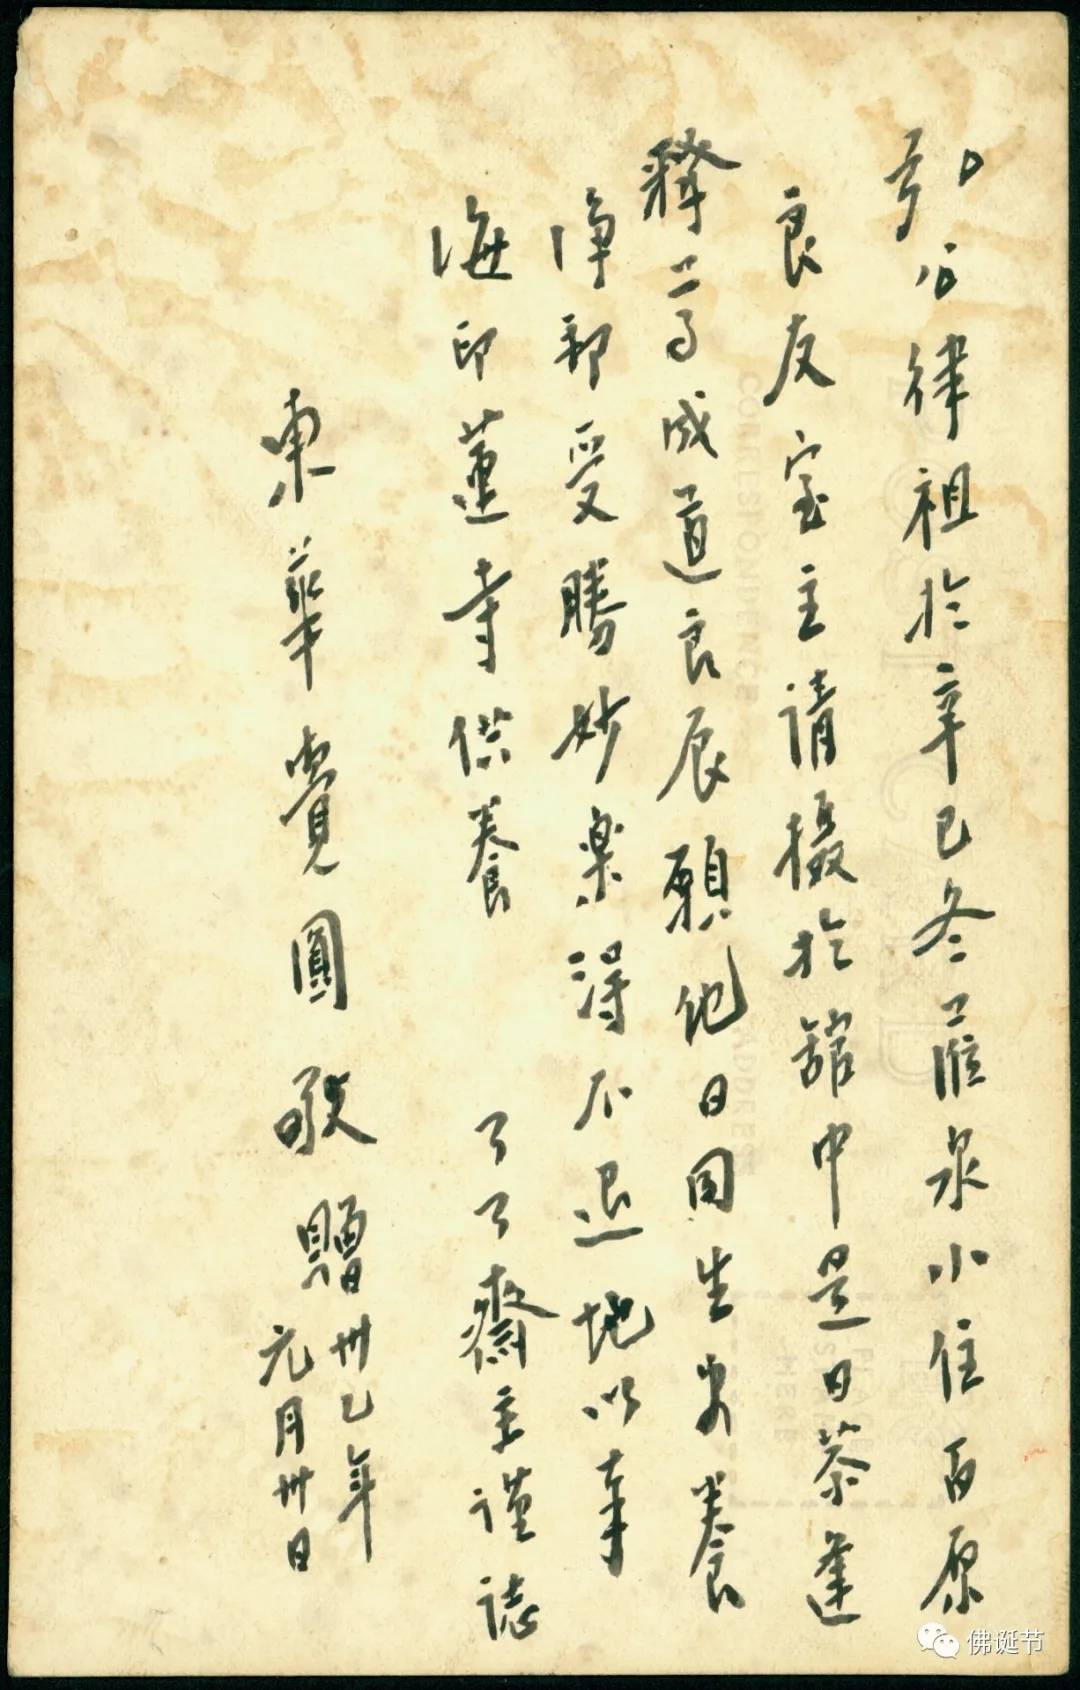 弘公律祖於辛巳冬蒞泉小住百原
良友室主請攝於館中是日恭逢
釋尊成道良辰願他日同生安養
淨郭受勝妙樂得不退地以奉
海印蓮寺供養
了了齋主謹誌
東華覺圓敬贈
卅乙年
元月卅日
CORRESPONDENCE
ADDRESS
PLACE
HERE
佛诞节